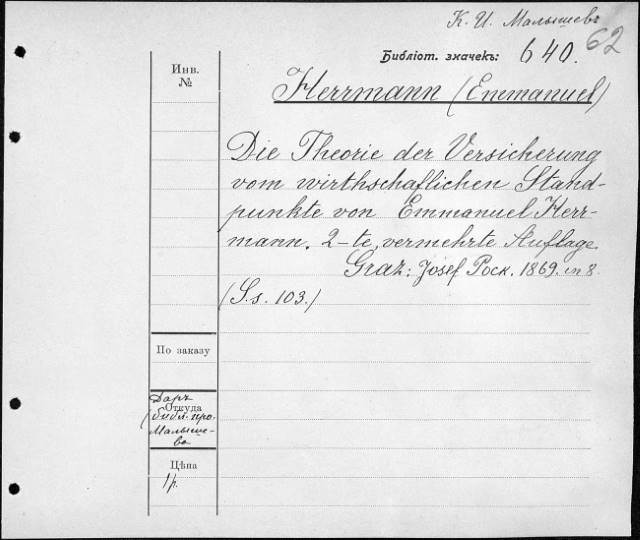 К. И. Малышевъ
62
Библіот. значекъ: 640.
Инв.
№
Herrmann (Emmanuel)
Die Theorie der Versicherung
vom wirthschaflichen Stand-
punkte von Emmanuel Herr-
mann. 2-te, vermehrte Auflage.
Graz: Josef Pock. 1869. in 8.
(S.s. 103.)
По заказу
Даръ
Откуда
(библ. про.
Малыше-
ва
Цѣна
1 р.